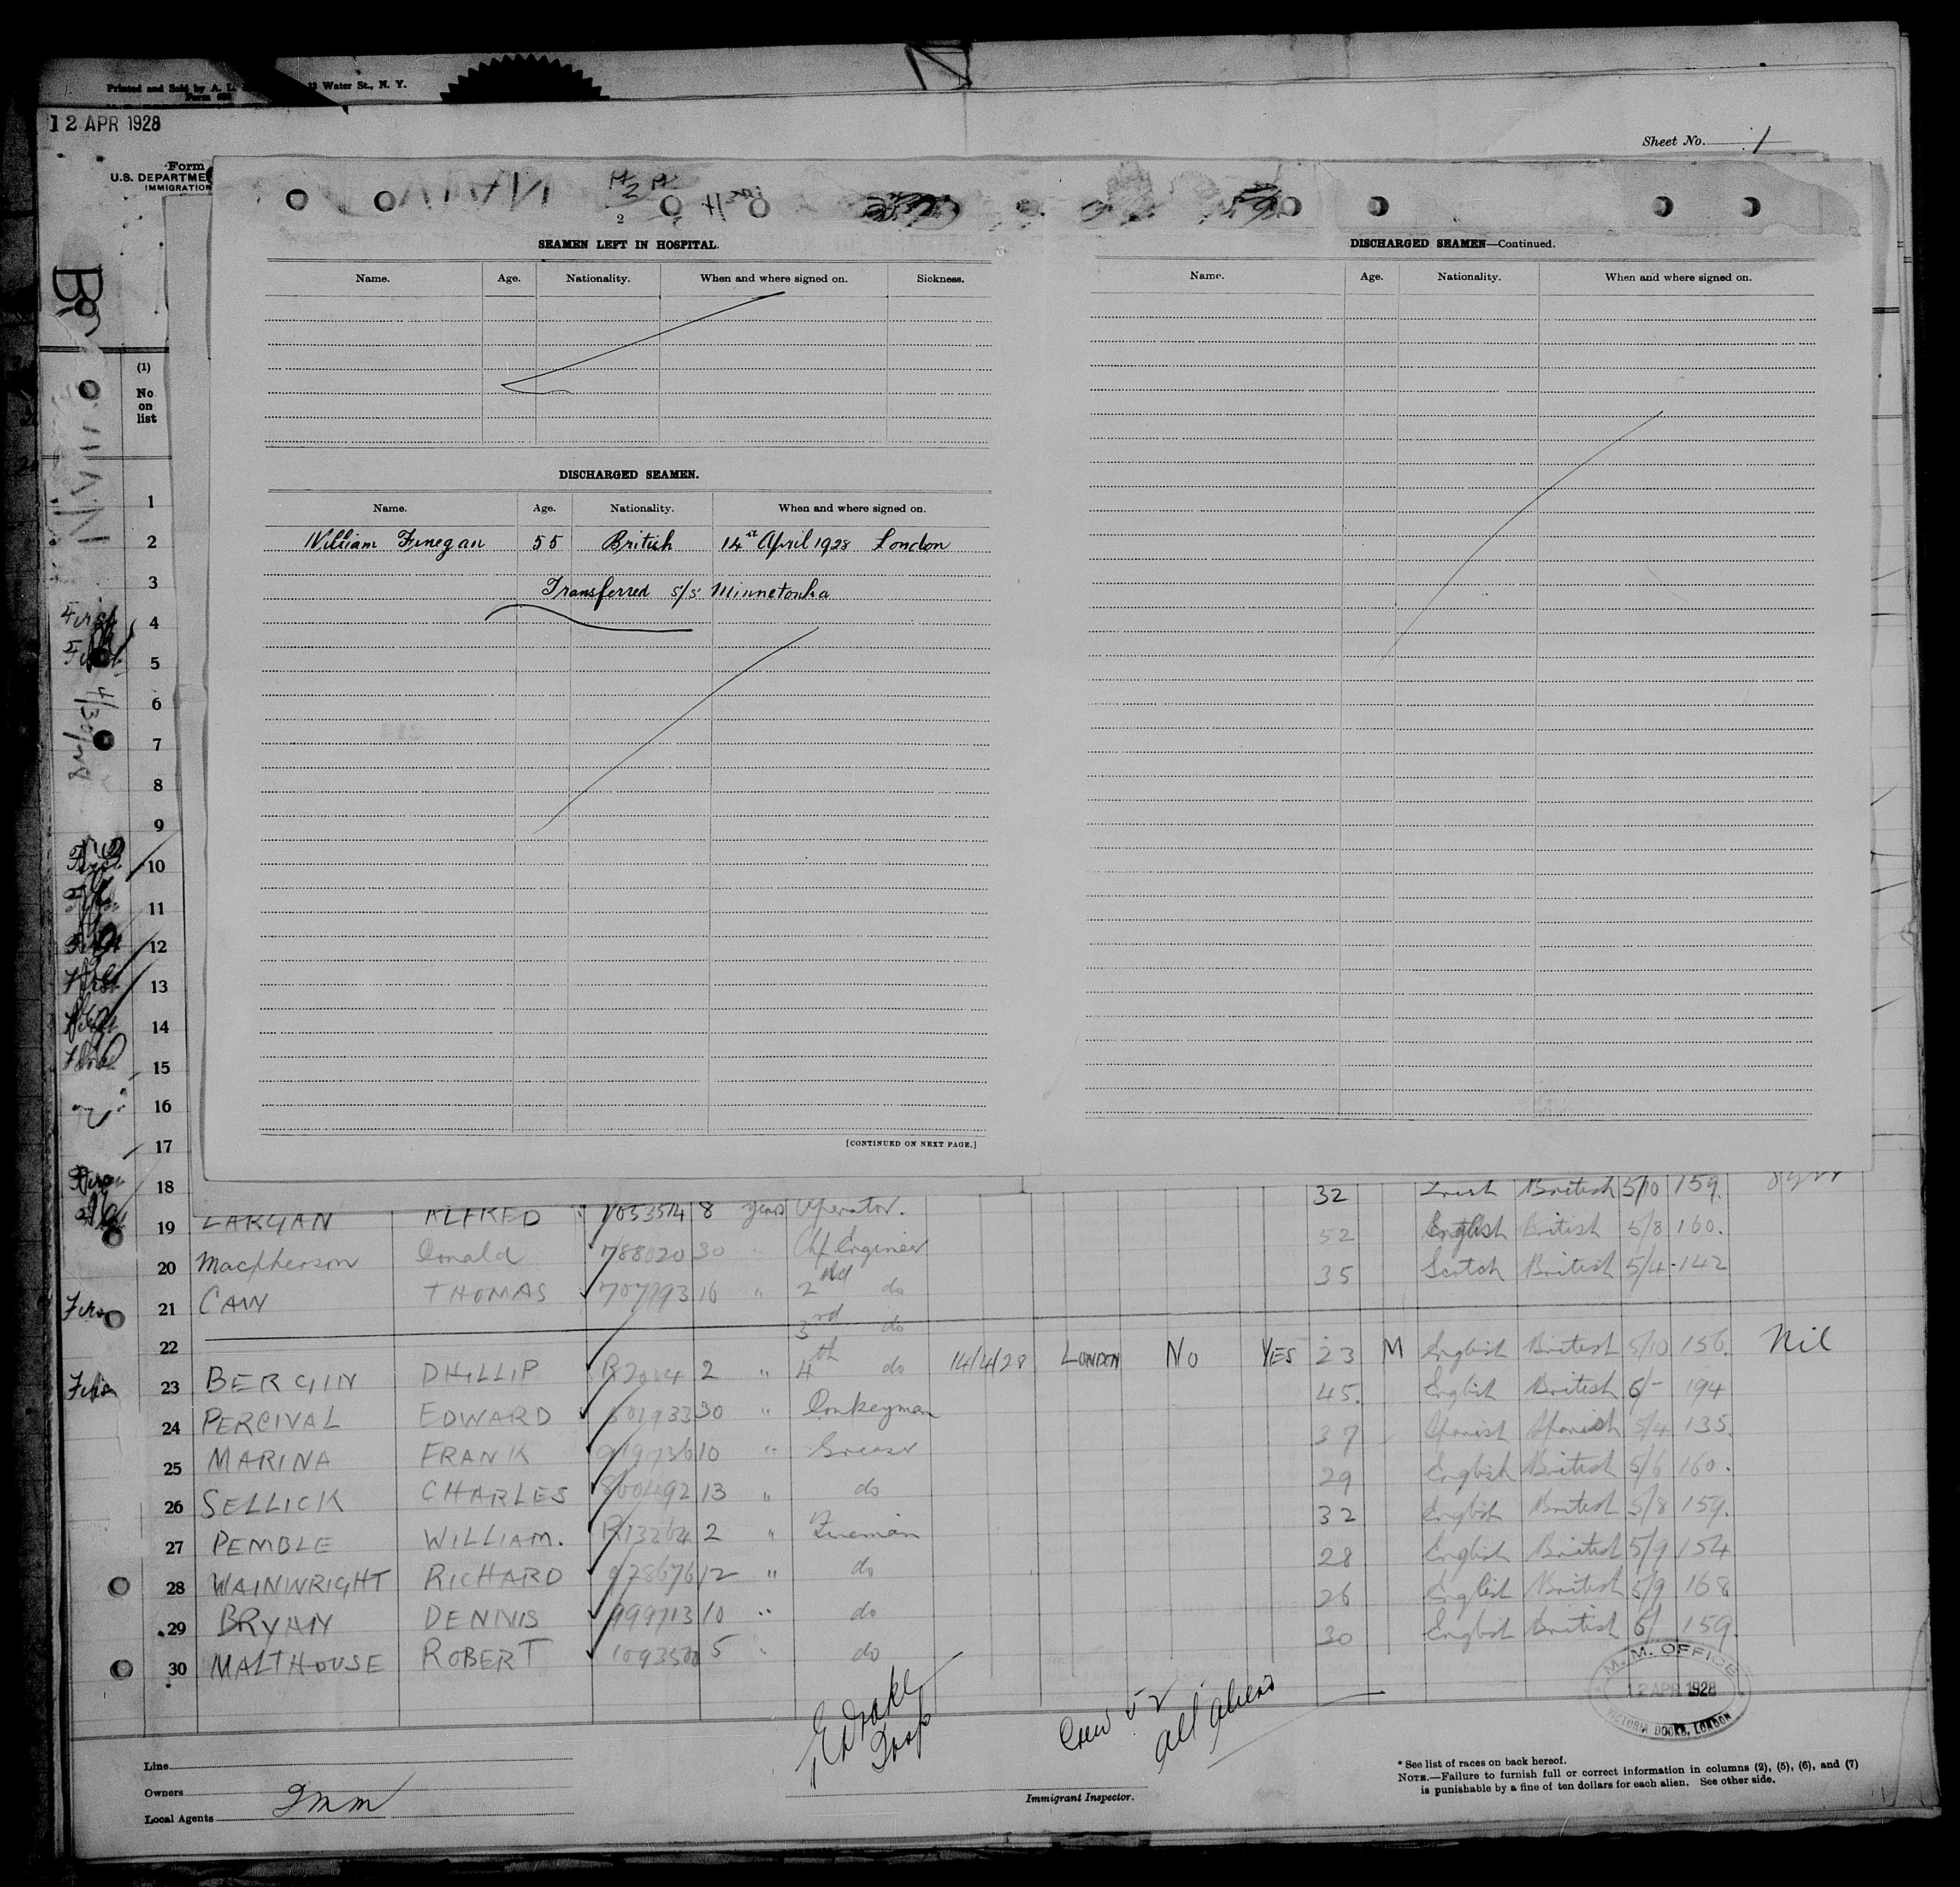 Printed and Sold by A. L.
13 Water St., N. Y.
12 APR 1928
Sheet No. 1
Form
U.S. DEPARTME
IMMIGRATION
2
SEAMEN LEFT IN HOSPITAL.
Name. Age. Nationality. When and where signed on. Sickness.
DISCHARGED SEAMEN.
Name. Age. Nationality. When and where signed on.
William Finegan 55 British 14st April 1928 London
Transferred s/s Minnetonka
[CONTINUED ON NEXT PAGE.]
DISCHARGED SEAMEN—Continued.
Name. Age. Nationality. When and where signed on.
(1)
No
on
list
1
2
3
4
5
6
7
8
9
10
11
12
13
14
15
16
17
18 32 Irish British 5/10 159.
19 LARGAN ALFRED 8 years Operator. 52 English British 5/8 160.
20 Macpherson Donald 788020 30 Chf Engineer 35 Scotch British 5/4 142
21 CAW THOMAS 16 " 2nd do
22 3rd do
23 BERGIN PHILLIP 2 " 4th do 14/4/28 LONDON No YES 23 M English British 5/10 156. Nil
24 PERCIVAL EDWARD 30 " Donkeyman 45. English British 6/- 194
25 MARINA FRANK 10 " Greaser 37 Spanish Spanish 5/4 135.
26 SELLICK CHARLES 800492 13 " do 29 English British 5/6 160.
27 PEMBLE WILLIAM. R13264 2 " Fireman 32 English British 5/8 159.
28 WAINWRIGHT RICHARD 978676 12 " do 28 English British 5/9 154
29 BRYAN DENNIS 999713 10 " do 26 English British 5/9 168
30 MALTHOUSE ROBERT 5 " do 30 English British 6/ 159.
M. M. OFFICE
12 APR 1928
VICTORIA DOCKS, LONDON
Crew
All Aliens
Line
Owners
Local Agents
Imm
Immigrant Inspector.
* See list of races on back hereof.
NOTE.—Failure to furnish full or correct information in columns (2), (5), (6), and (7)
is punishable by a fine of ten dollars for each alien. See other side.